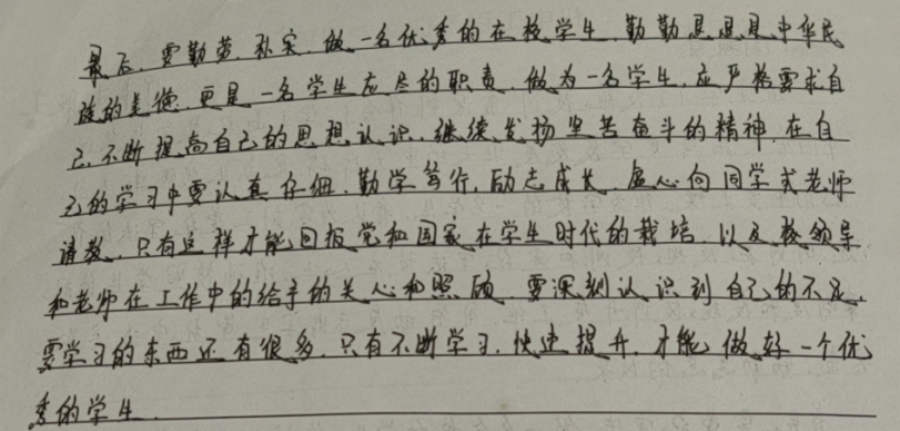 最后,要勤劳,朴实,做一名优秀的在校学生,勤勤恳恳是中华民
族的美德,更是一名学生应尽的职责,做为一名学生,应严格要求自
己,不断提高自己的思想认识,继续发扬坚苦奋斗的精神,在自
己的学习中要认真仔细,勤学笃行,励志成长,虚心向同学或老师
请教,只有这样才能回报党和国家在学生时代的栽培,以及教领导
和老师在工作中的给予的关心和照顾,要深刻认识到自己的不足,
要学习的东西还有很多,只有不断学习,快速提升,才能做好一个优
秀的学生.